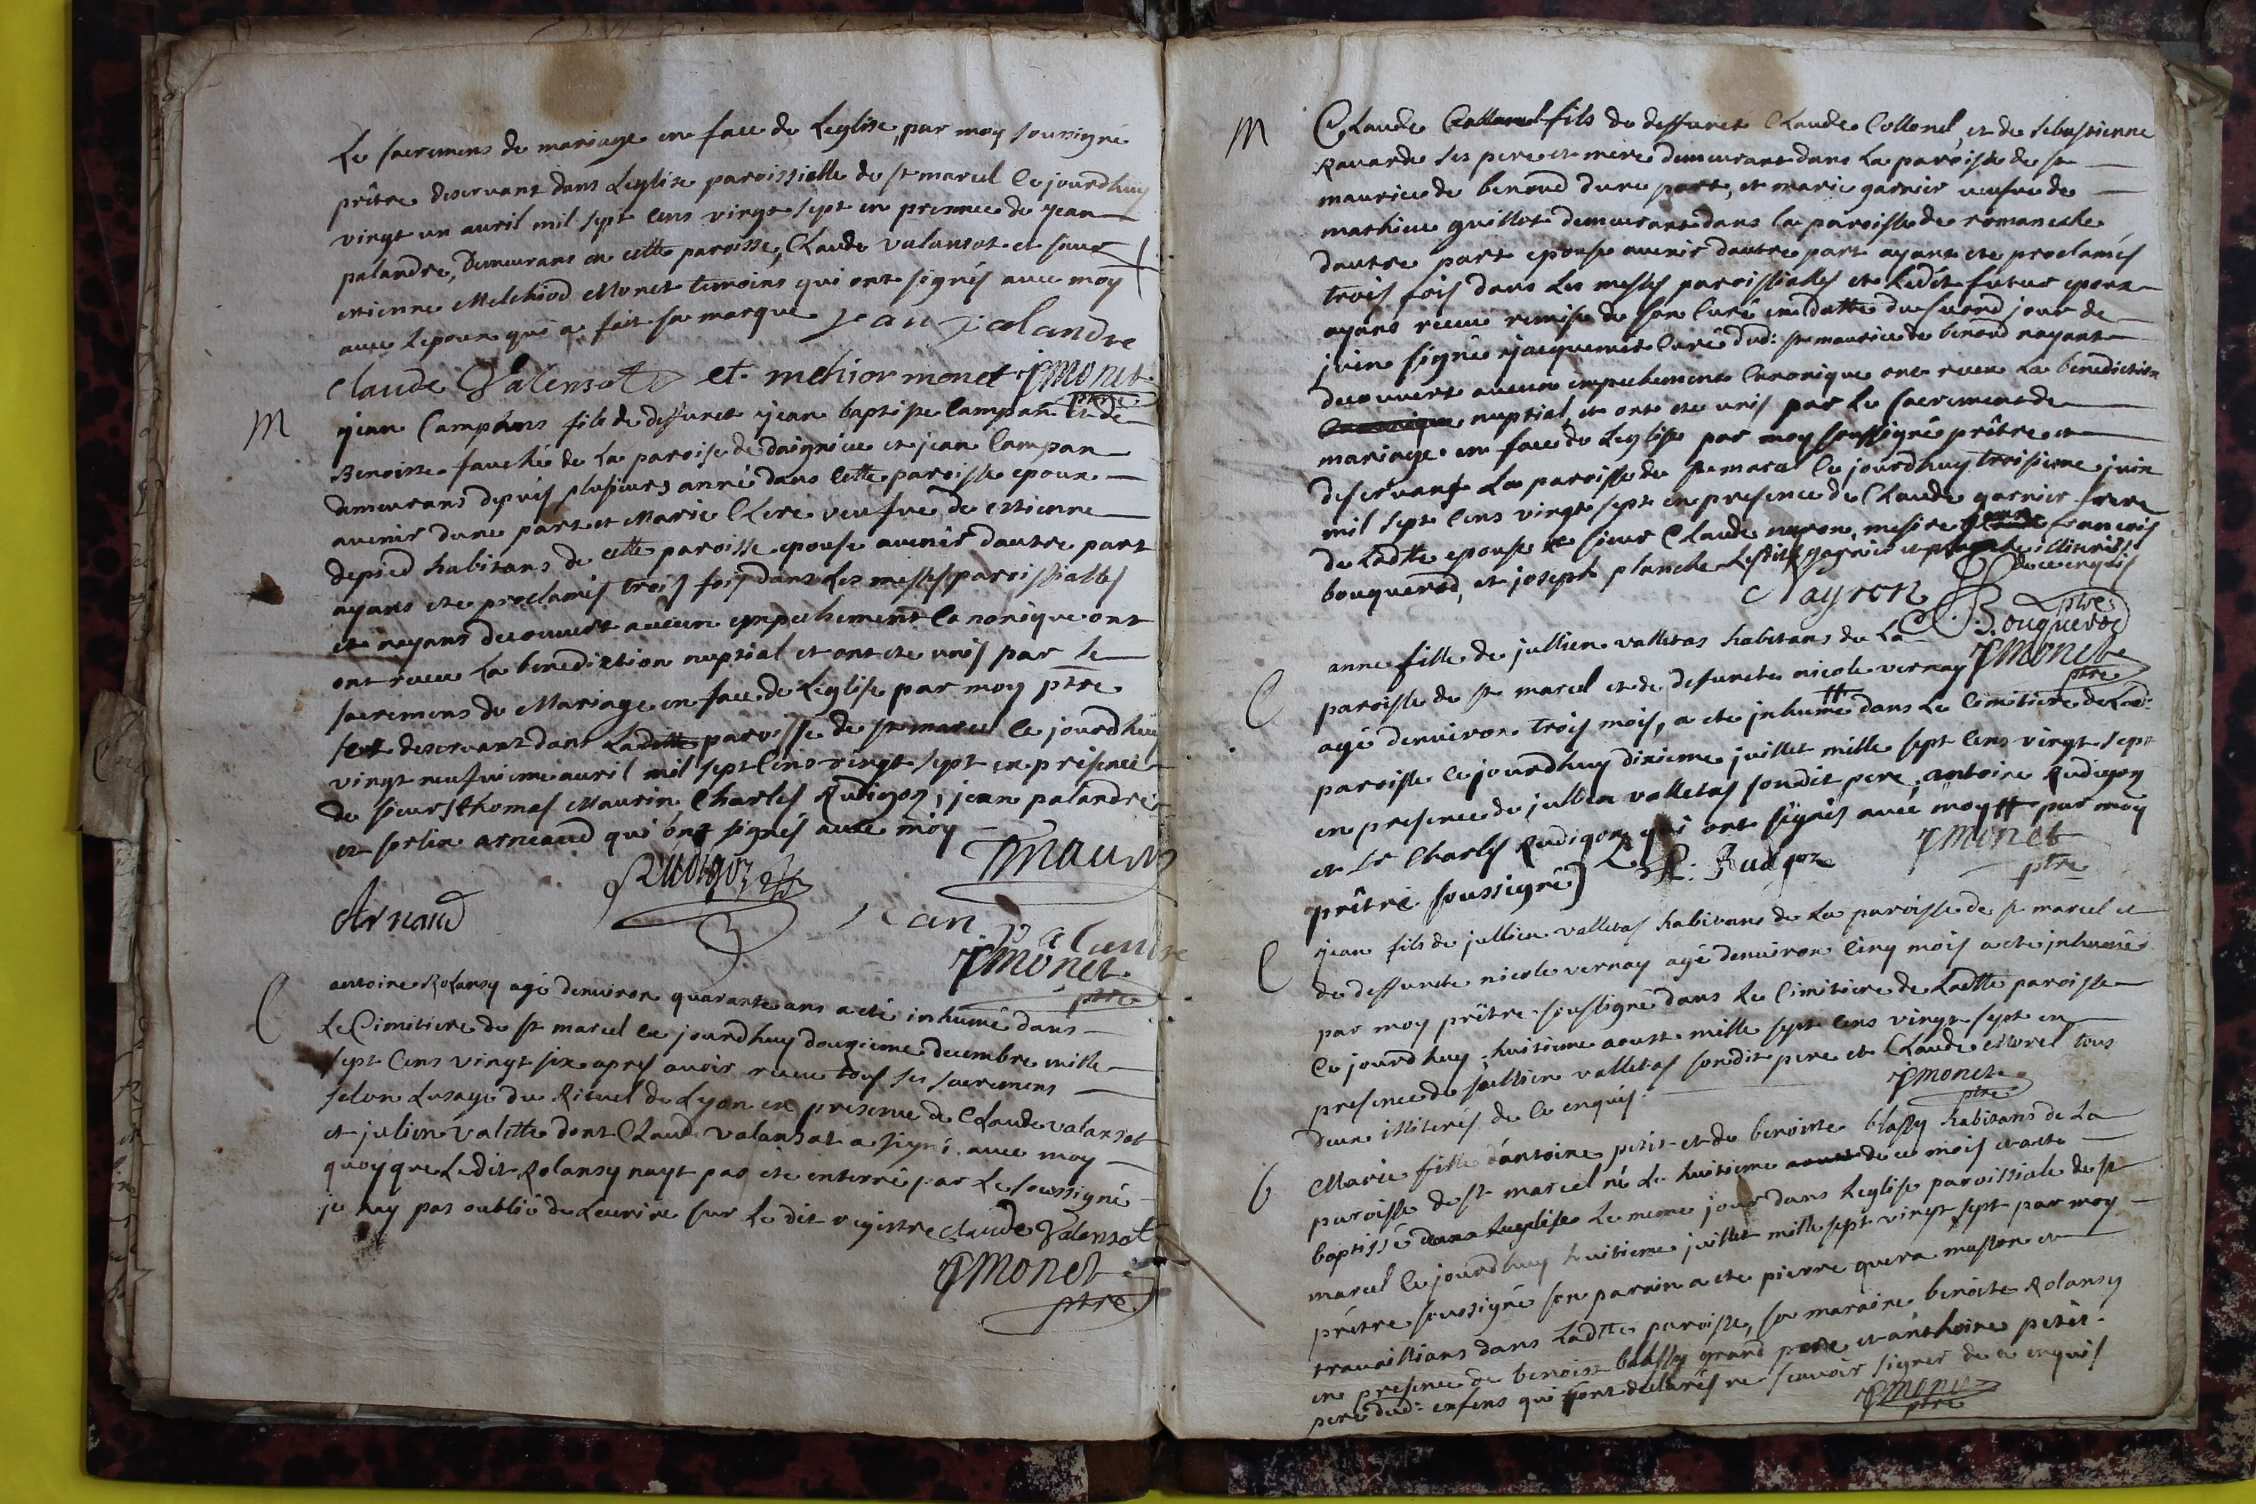 Le sacremens de mariage en face de Leglise par moy soussigné
prêtre deservant dans Leglise paroissialle de st marcel Ce jourdhuy
vingt un auril mil sept Cens vingt sept en presence de jean
palandre, Demeurans en cette paroisse, Claude valansot et sieur
etienne Melchiod Monet temoins qui ont signés avec moy
avec Lepoux qui a fait sa marque jean palandre
Claude Valensot et mehior monet JMonet
ptre
M
jean Camphans fils de deffunct jean baptiste Campan et de
Benoiste fauché de La paroise de daignieu et jean Campan
demeurans depuis plusieurs anné dans Cette paroisse epoux
avenir dune part et Marie Clere veufve de estienne
depied habitans de cette paroisse epouse avenir dautre part
ayans ete proclamés trois fois dans Les messes paroissialles
et nayans decouvert aucun empechement Canonique ont
ont receu La benediction nuptial et ont ete unis par le
sacremens de Mariage en face de Leglise par moy ptre
deservant dans Ladtte paroisse de st marcel Ce jourdhuy
vingt neufvieme auril mil sept Cens vingt sept en présence
de sieurs thomas Maurin Charles Rudigoz, jean palandre
et sorlin arneaud qui ont signés avec moy
Rudigoz Tmaurin
Arnaud jean palandre
JMonet
ptre
C
antoine Rolansy agé denviron quarante ans a eté inhumé dans
Le Cimitiere de st marcel Ce jourdhuy douzieme decembre mille
sept Cens vingt six apres avoir receu tous ses sacremens
selon Lusage du Rituel de Lyon en presence de Claude valansot
et julien valette dont Claude valansot a signé avec moy
quoy que Ledit Rolansy nayt pas ete enterré par Le soussigné
je nay pas oublié de Lecrire sur Le dit registre Claude Valensot
JMonet
ptre
M
Claude fils de deffunct Claude Collonel et de sebastienne
Ravarde ses pere et mere demeurant dans La paroisse de st
maurice de benond dune part, et marie garnier veufve de
mathieu guillot demeurant dans la paroisse de romaneche
dautre part epouse avenir dautre part ayant ete proclamés
trois fois dans Les messes paroissialles et Ledit futur epoux
ayans receu remise de son Curé en datte du second jour de
juin signée jacquemet Curé dud: st maurice de benond nayant
decouvert aucun empechement Canonique ont receu La benediction
nuptial, et ont ete unis par Le sacrement de
mariage en face de Leglise par moy soussigné prêtre et
deservant La paroisse de st marcel Ce jourdhuy troisieme juin
mil sept Cens vingt sept en presence de Claude garnier frere
de Ladtte epouse sieur Claude nayron, mesire francois
bouquerod, et joseph planche Lesdits garnier et planche illiterés
de ce enquis
Nayron Bouquerod
ptre
JMonet
ptre
C
anne fille de jullien valletas habitans de La
paroisse de st marcel et de defuncte nicole vernay
agé denviron trois mois, a ete inhumé dans Le Cimitiere de Lad:
paroisse Ce jourdhuy dixieme juillet mille sept Cens vingt sept
en presence de jullien valletas sondit pere antoine Rudigoz
et sr Charles Rudigoz qui ont signés avec moy par moy
prêtre soussigné Rudigoz JMonet
ptre
C
jean fils de jullien valletas habitans de La paroisse de st marcel et
de deffuncte nicole vernay agé denviron Cinq mois a ete inhumé
par moy prêtre soussigné dans Le Cimitiere de Ladtte paroisse
Ce jourdhuy huitieme aoust mille sept Cens vingt sept en
presence de jullien valletas sondit pere et Claude morel tous
deux illiterés de Ce enquis.
JMonet
ptre
b
Marie fille dantoine petit et de benoitte blassy habitans de La
paroisse de st marcel né Le huitieme de ce mois et a ete
baptissé Le meme jour dans Leglise paroissiale de st
marcel Ce jourdhuy huitieme juillet mille sept vingt sept par moy
prêtre soussigné son parrin a ete pierre quera masson et
travaillians dans Ladtte paroisse, sa maraine benoite Rolansy
en presence de benoist blassy grand pere et anthoine petit
pere dud: enfens qui sont declarés ne scavoir signer de ce enquis
JMonet
ptre